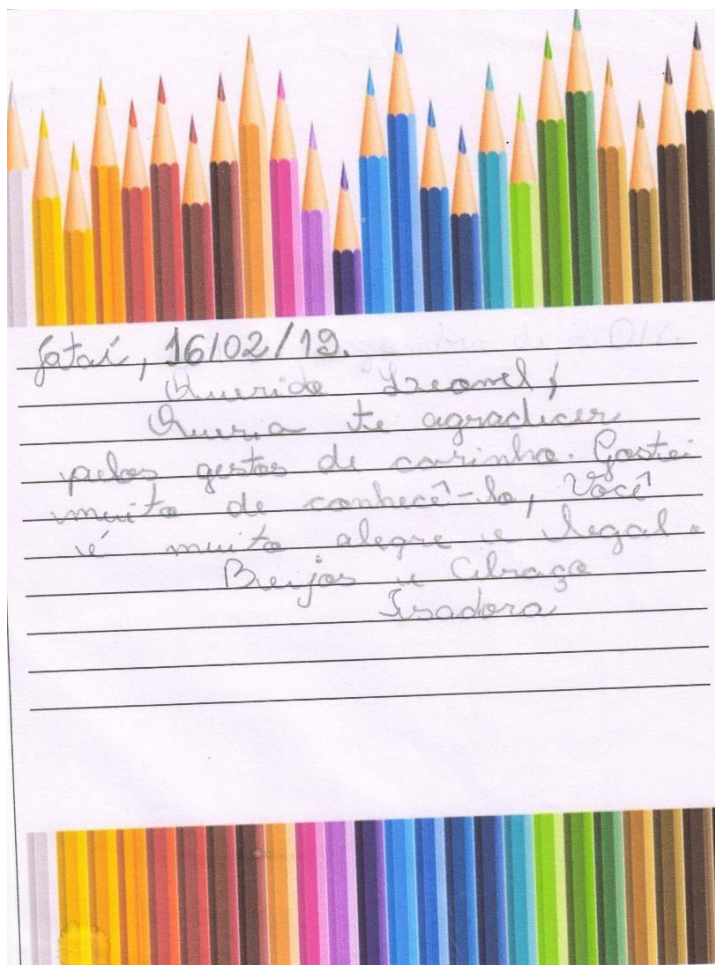 Jataí, 16/02/19.
Querido
Queria te agradecer
pelos gestos de carinho. Gostei
muito de conhecê-lo, Você
é muito alegre e legal.
Beijos e Abraço
Isadora